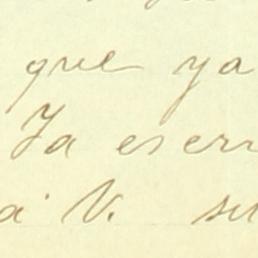 que ya
Ya escri
a V. su